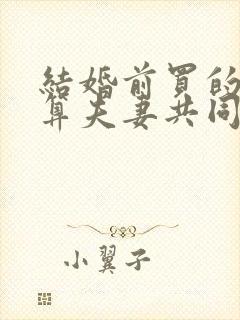 結婚前買的
算夫妻共同
小翼子